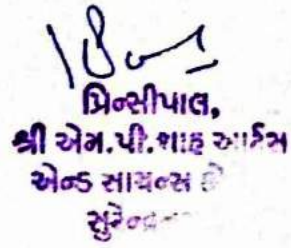 પ્રિન્સીપાલ,
શ્રી એમ.પી.શાહ આર્ટસ
એન્ડ સાયન્સ